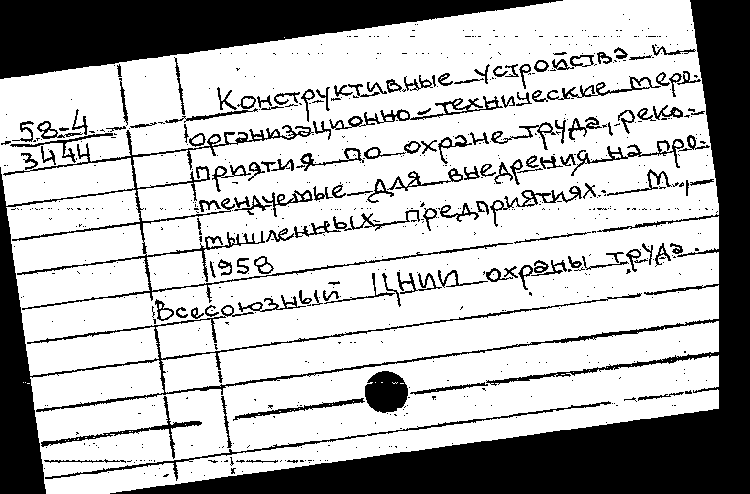 Конструктивные устройства и
58-4
организационно-технические меро-
3444
приятия по охране труда, реко-
мендуемые для внедрения на про-
мышленных предприятиях. М.,
1958
Всесоюзный ЦНИИ охраны труда.